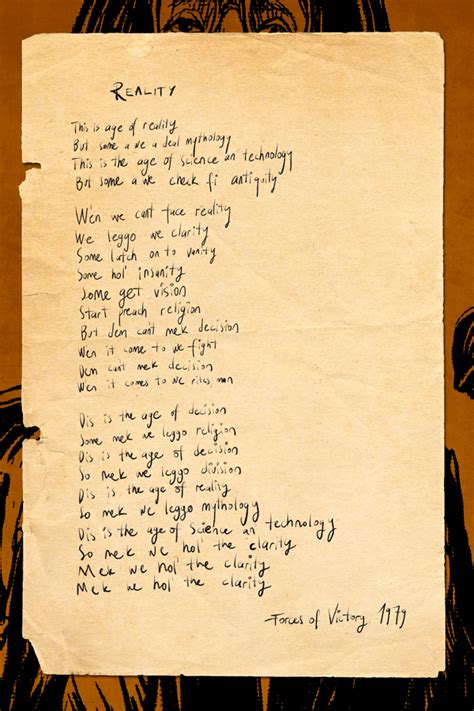 REALITY
This is age of reality
But some a we a deal mythology
This is the age of science an technology
But some a we check fi antiquity
Wen we cant face reality
We leggo we clarity
Some latch on to vanity
Some hol' insanity
Some get vision
Start preach religion
But dem cant mek decision
Wen it come to we fight
Dem cant mek decision
Wen it comes to we rites man
Dis is the age of decision
Some mek we leggo religion
Dis is the age of decision
So mek we leggo division
Dis is the age of reality
So mek we leggo mythology
Dis is the age of science an' technology
So mek we hol' the clarity
Mek we hol' the clarity
Mek we hol' the clarity
-Forces of Victory 1979